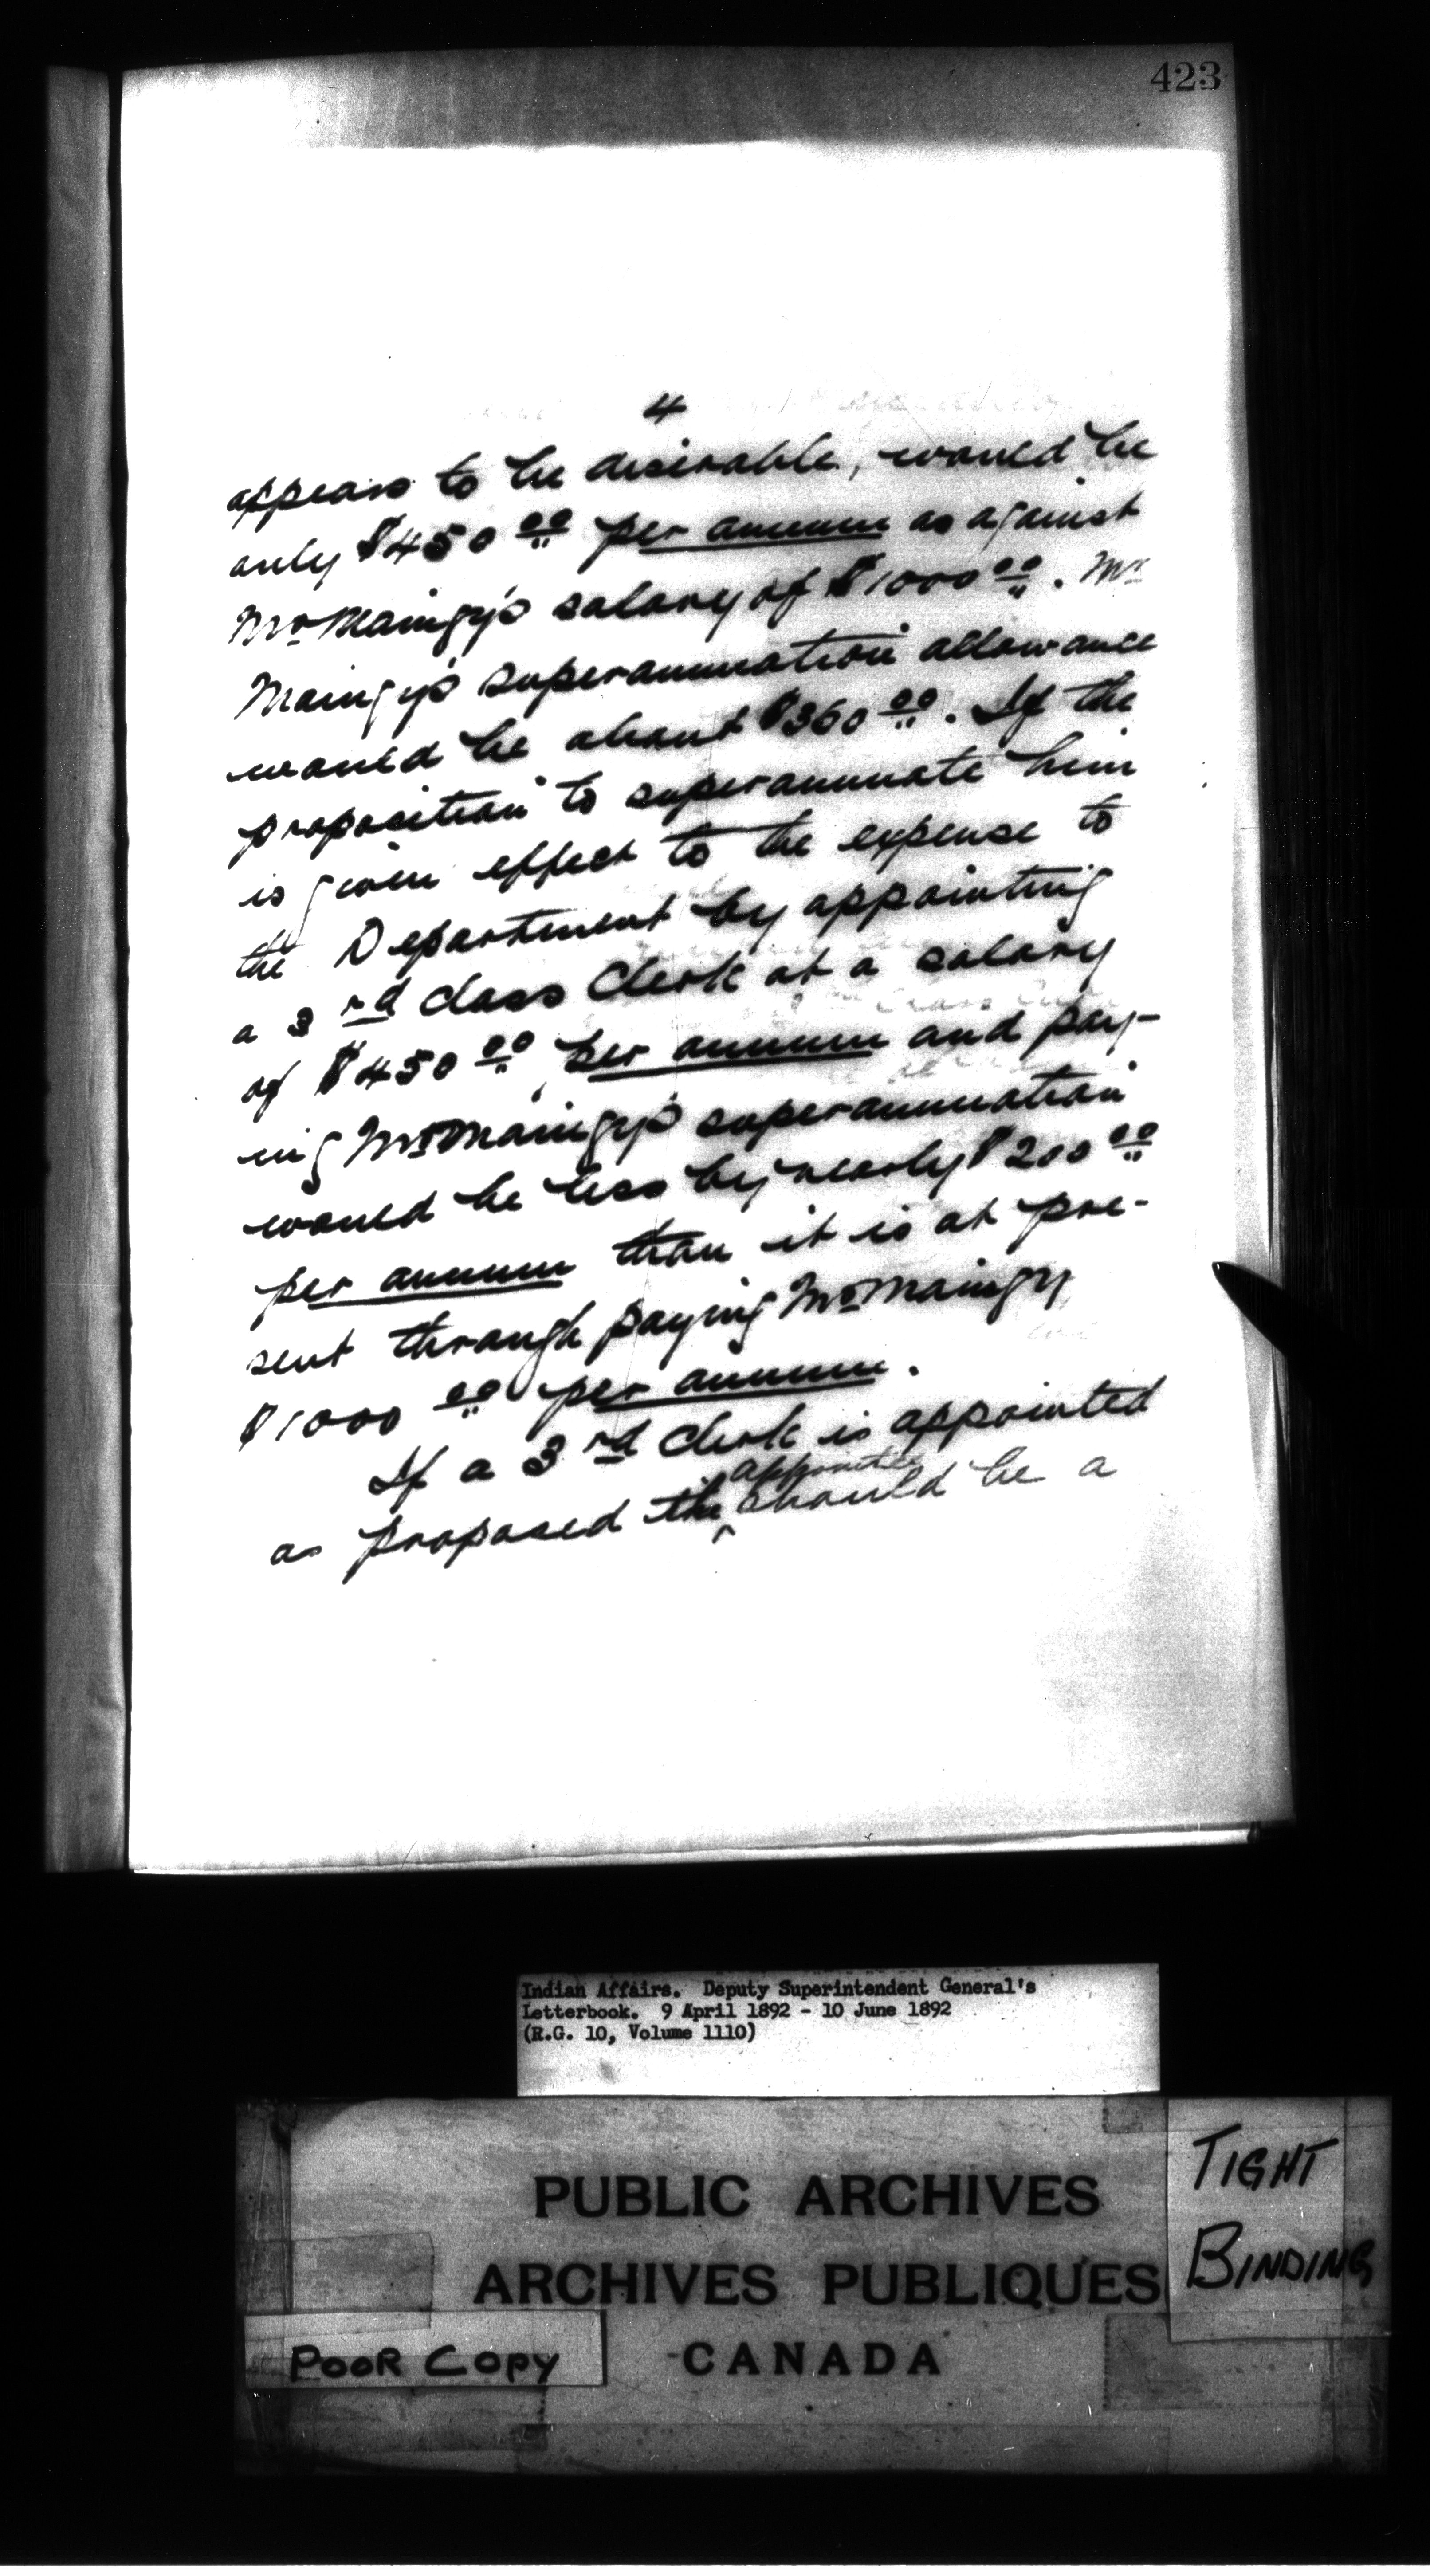 423
4
appears to be desirable, would be
only $450 00 per annum as against
Mr Maingy's salary of $1000 00. Mr
Maingy's superannuation allowance
would be about $360 00. If the
proposition to superannuate him
is given effect to the expense to
the Department by appointing
a 3rd class Clerk at a salary
of $450 00 per annum and pay-
ing Mr Maingy's superannuation
would be less by nearly $200 00
per annum than it is at pre-
sent through paying Mr Maingy
$1000 00 per annum.
If a 3rd Clerk is appointed
appointee
as proposed the should be a
Indian Affairs. Deputy Superintendent General's
Letterbook. 9 April 1892 - 10 June 1892
(R.G. 10, Volume 1110)
PUBLIC ARCHIVES
ARCHIVES PUBLIQUES
CANADA
TIGHT
BINDING
POOR COPY